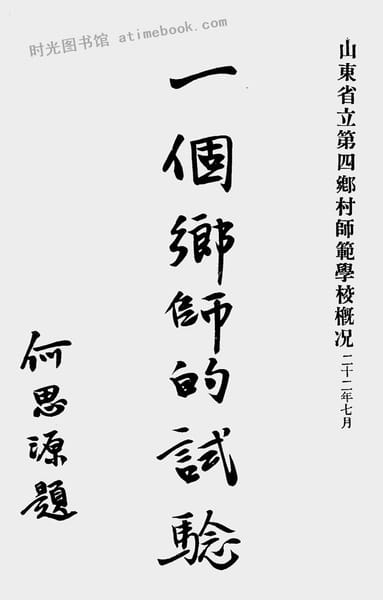 时光图书馆 atimebook.com
山東省立第四鄉村師範學校概况 二十二年七月
一個鄉師的試驗
何思源題